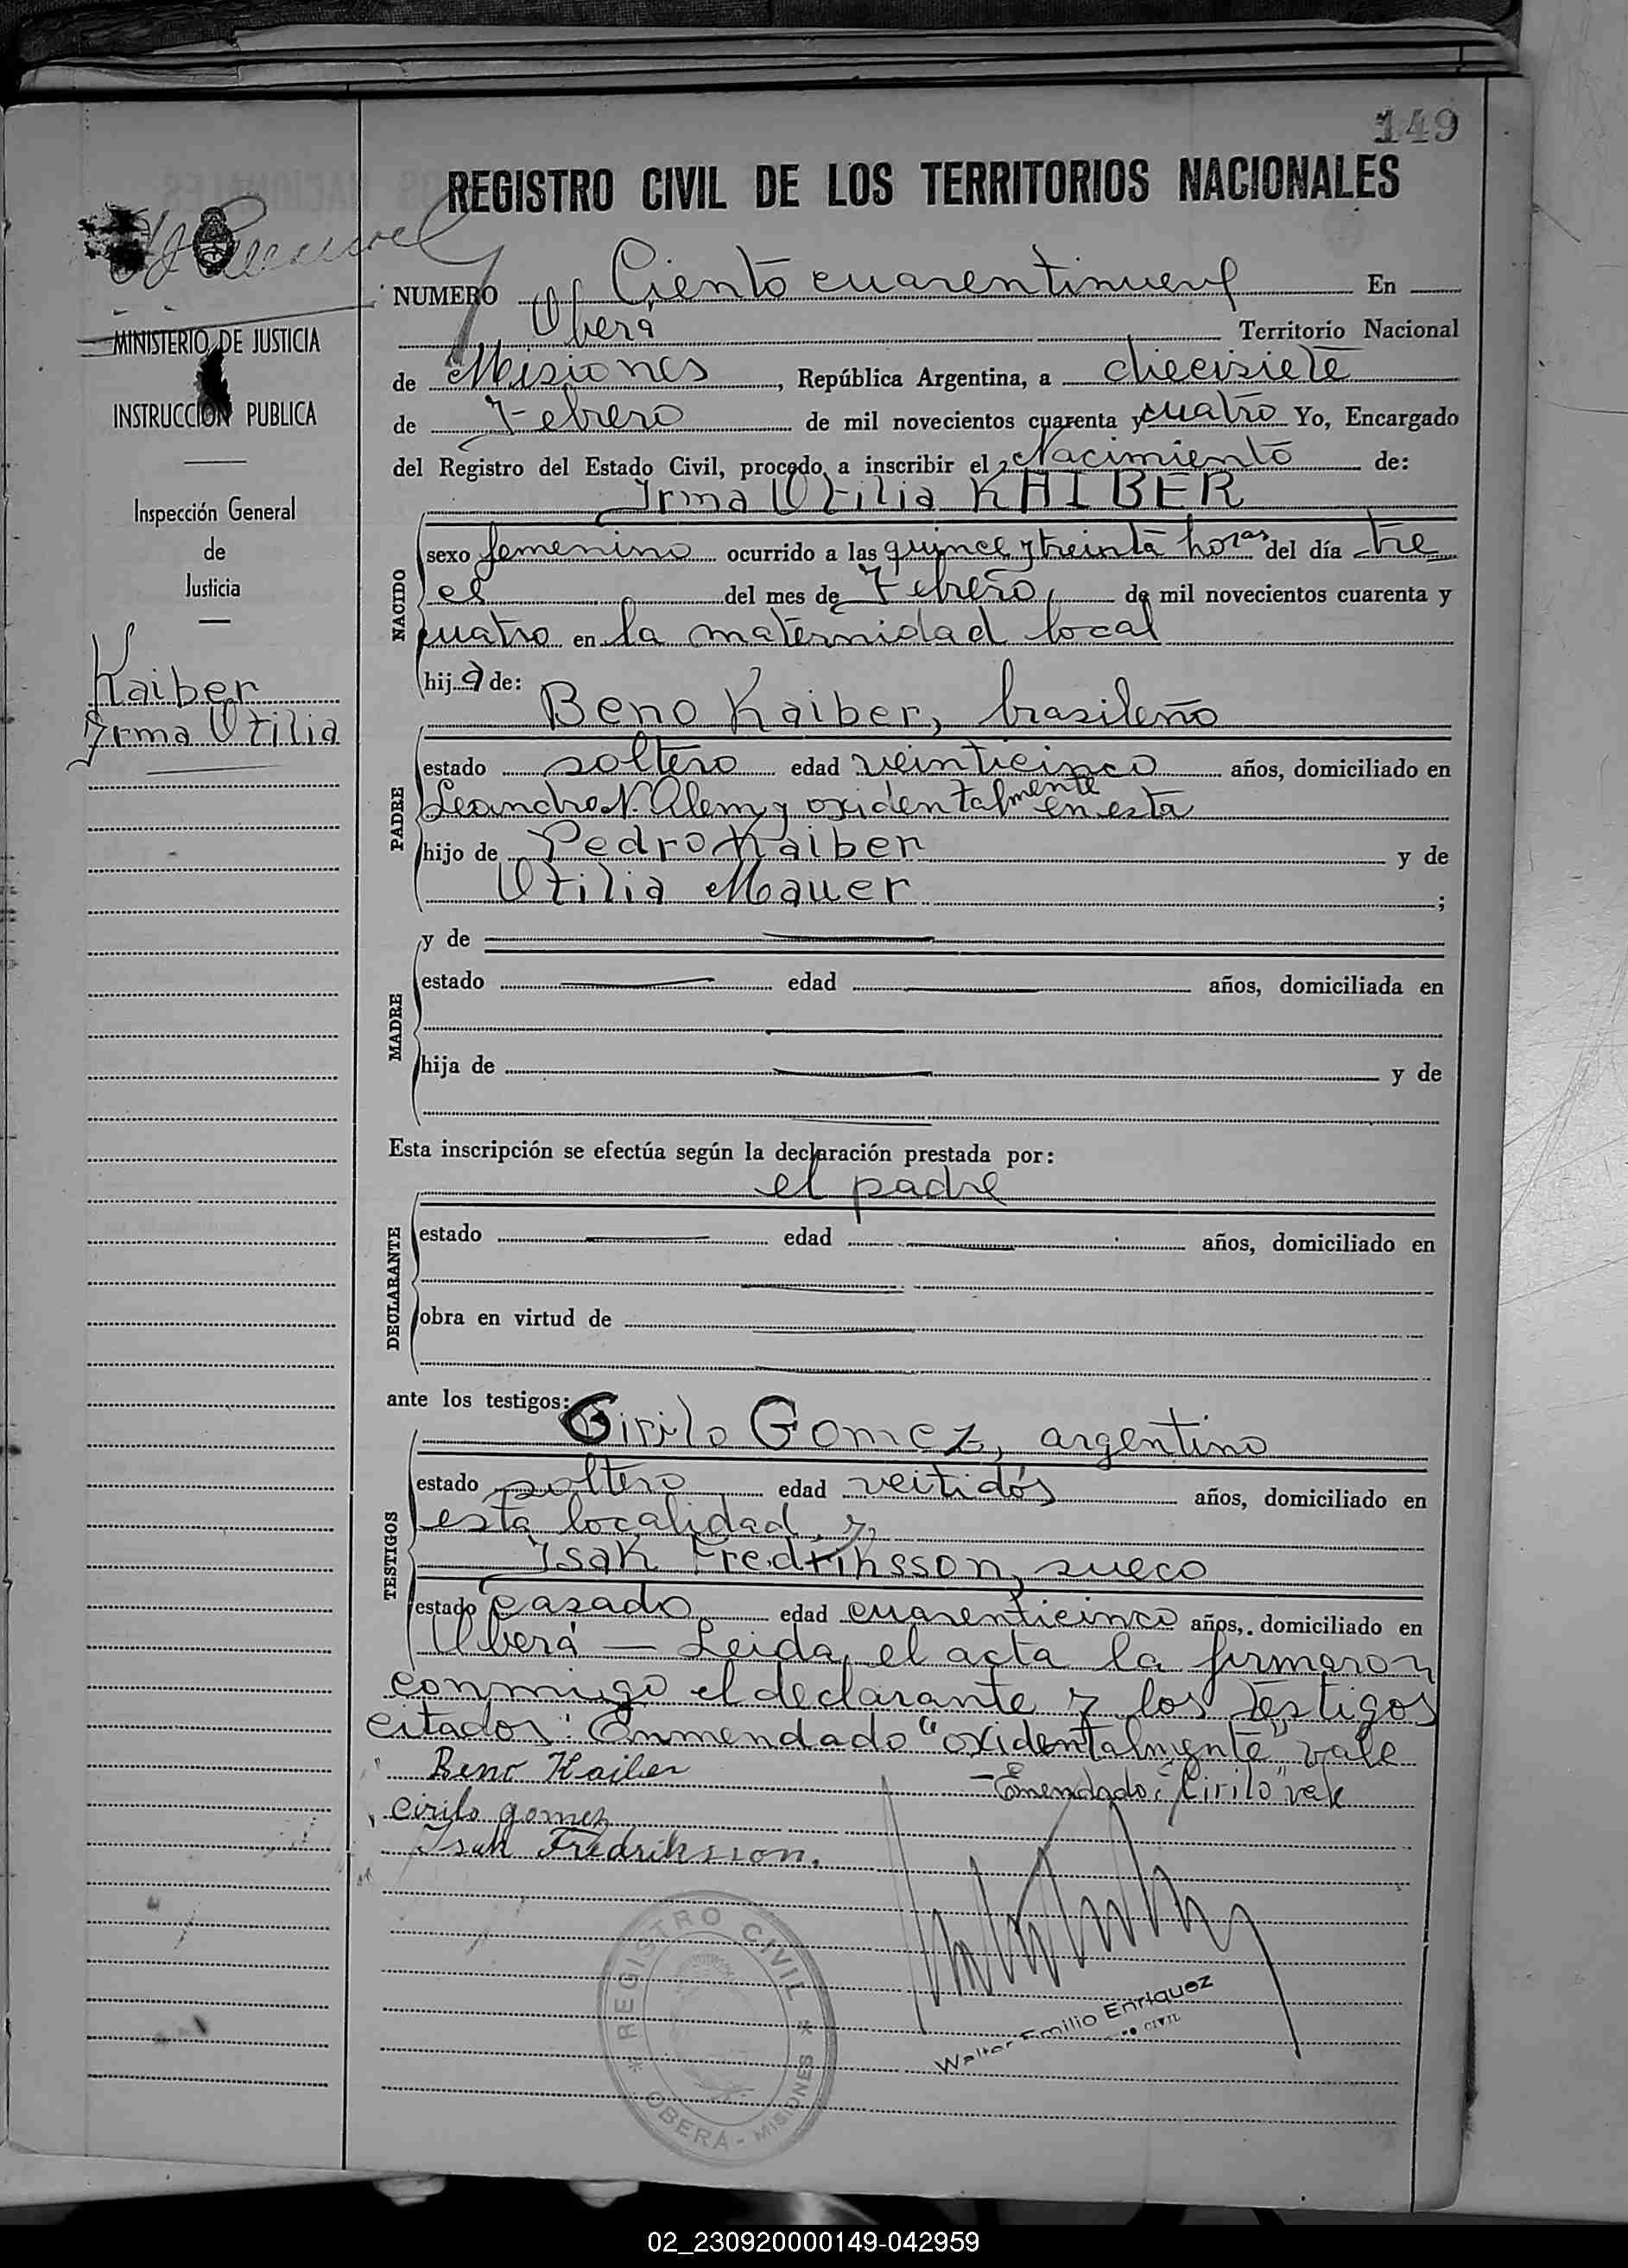 149
REGISTRO CIVIL DE LOS TERRITORIOS NACIONALES
MINISTERIO DE JUSTICIA
INSTRUCCION PUBLICA
Inspección General
de
Justicia
Kaiber
Irma Otilia
NUMERO Ciento cuarentinueve En
Oberá Territorio Nacional
de Misiones, República Argentina, a diecisiete
de Febrero de mil novecientos cuarenta y cuatro Yo, Encargado
del Registro del Estado Civil, procedo a inscribir el Nacimiento de:
Irma Otilia KAIBER
NACIDO
sexo femenino ocurrido a las quince y treinta horas del día tre
ce del mes de Febrero, de mil novecientos cuarenta y
cuatro en la maternidad local
hija de:
Beno Kaiber, brasileño
PADRE
estado soltero edad veinticinco años, domiciliado en
Leandro N. Alem y oxidentalmente en esta
hijo de Pedro Kaiber y de
Otilia Mauer ;
MADRE
y de
estado edad años, domiciliada en
hija de y de
Esta inscripción se efectúa según la declaración prestada por:
el padre
DECLARANTE
estado edad años, domiciliado en
obra en virtud de
ante los testigos:
Cirilo Gomez, argentino
TESTIGOS
estado soltero edad veitidós años, domiciliado en
esta localidad y
Isak Fredriksson, sueco
estado casado edad cuarenticinco años, domiciliado en
Oberá — Leida el acta la firmaron
conmigo el declarante y los testigos
citados: Enmendado "oxidentalmente" vale
Beno Kaiber — Emendado: "Cirilo" vale
cirilo gomez
Isak Fredriksson.
* REGISTRO CIVIL * OBERÁ - MISIONES
Walter Emilio Enriquez
CIVIL
02_230920000149-042959